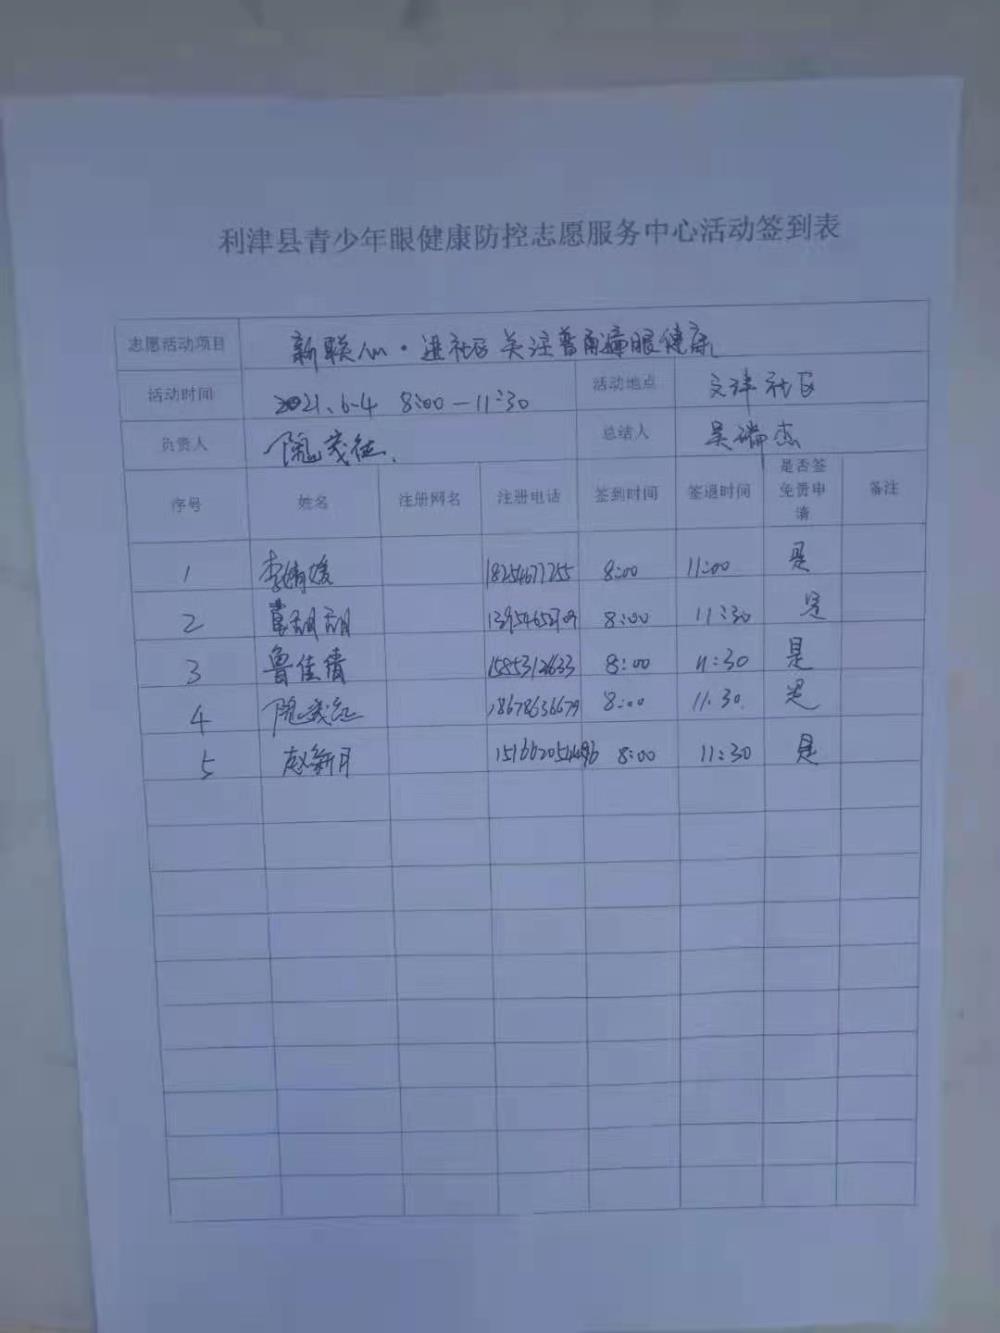 利津县青少年眼健康防控志愿服务中心活动签到表
志愿活动项目 新联人心·进社区关注普角膜眼健康
活动时间 2021.6-4 8:00—11:30 活动地点 文津社区
负责人 总结人 吴瑞杰
序号 姓名 注册网名 注册电话 签到时间 签退时间 是否签免责申请 备注
1 李婧媛 18254677255 8:00 11:00 是
2 8:00 11:30 是
3 鲁佳倩 8:00 11:30 是
4 18678636679 8:00 11.30 是
5 赵新月 8:00 11:30 是